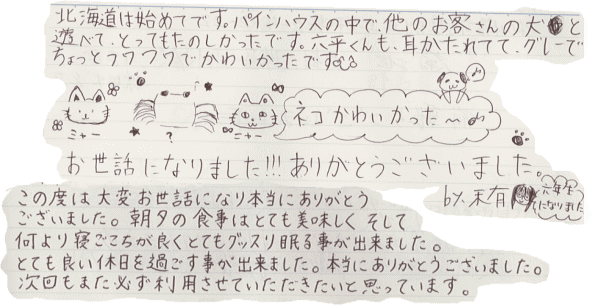 北海道は始めてです。パインハウスの中で、他のお客さんの犬と
遊べて、とってもたのしかったです。六平くんも、耳がたれてて、グレーで
ちょっとフワフワでかわいかったです
ネコかわいかった〜♪
ミャー
?
ニャー
お世話になりました!!!ありがとうございました。
by.未有
六年生になりました
この度は大変お世話になり本当にありがとう
ございました。朝夕の食事はとても美味しく そして
何より寝ごこちが良くとてもグッスリ眠る事が出来ました。
とても良い休日を過ごす事が出来ました。本当にありがとうございました。
次回もまた必ず利用させていただきたいと思っています。